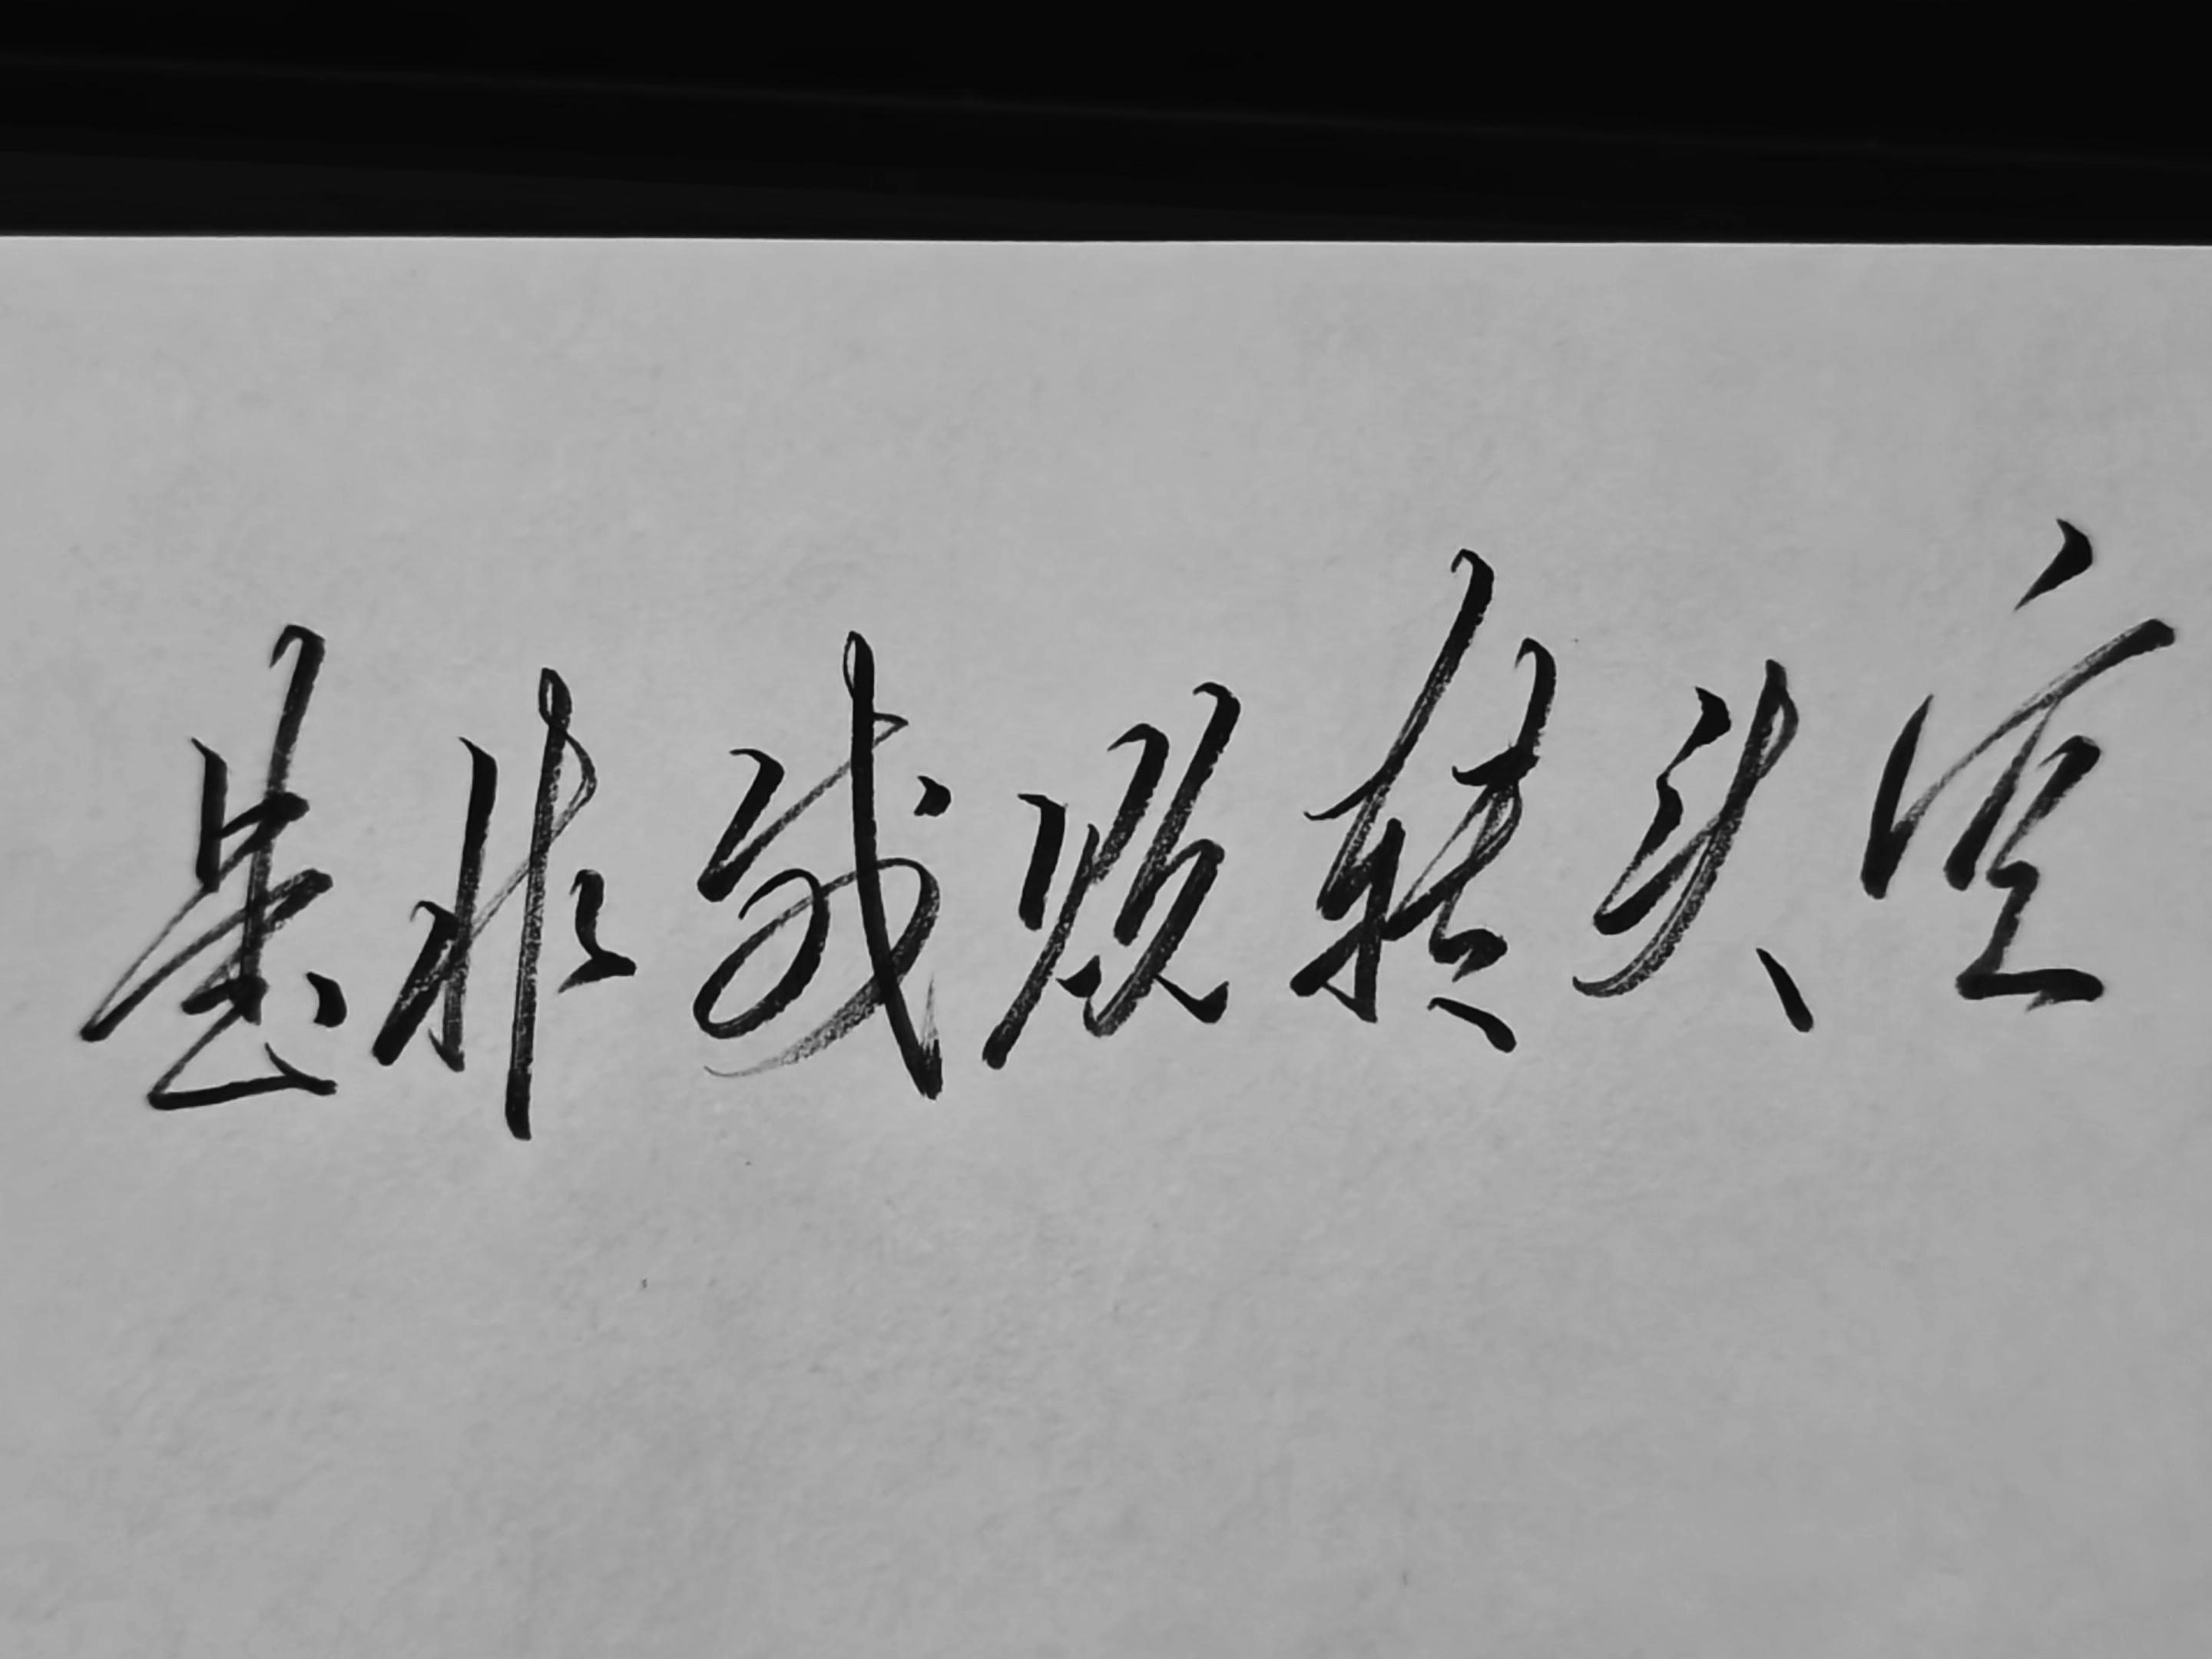 是非成败转头空